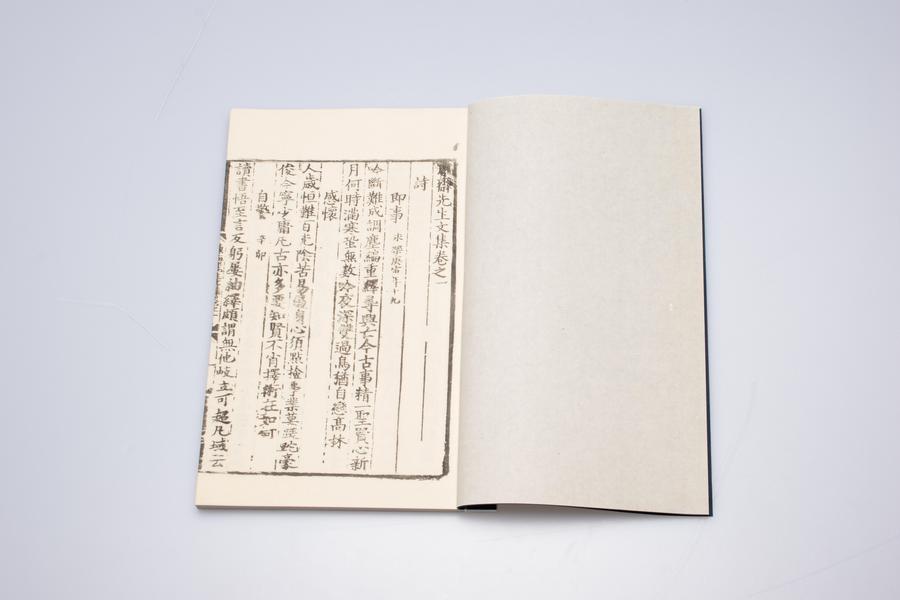 齋先生文集卷之一
詩
即事 永樂庚寅年十九
吟斷難成調塵編重繹尋興亡今古事精一聖賢心新
月何時滿寒蛩無數吟夜深雙過鳥猶自戀高林
感懷
人歲恒難百光陰苦易侵身心須點檢事業莫
俊今寧少庸凡古亦多要知賢不肖擇術在如何
自警 辛卯
讀書悟至言反躬屢紬繹頗謂無他岐立可超凡域云